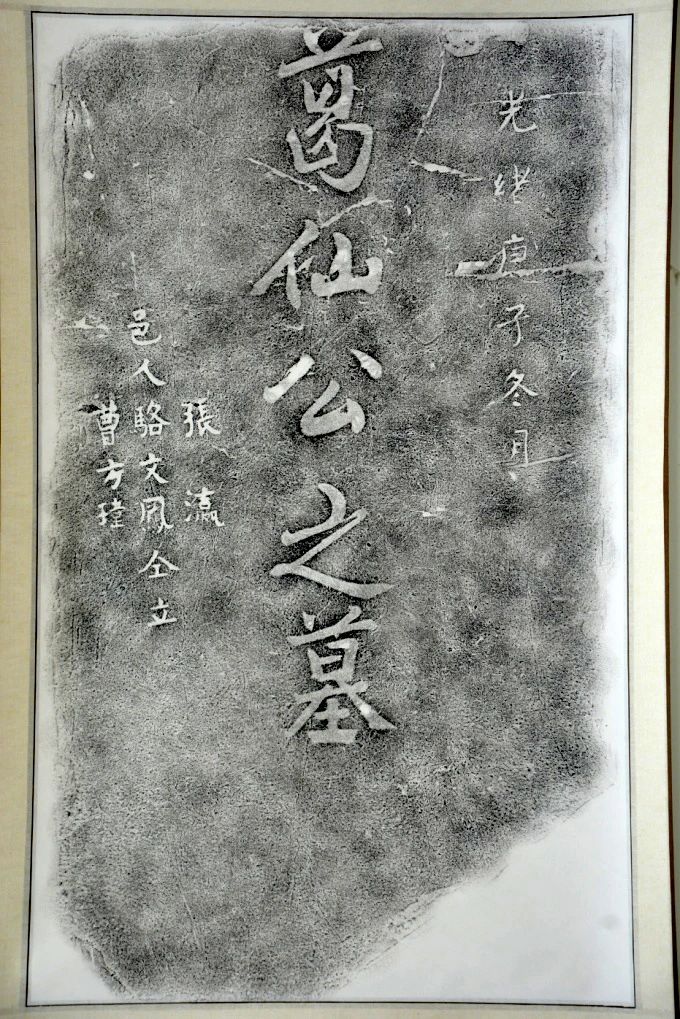 光緒庚子冬月
葛仙公之墓
張瀛
邑人駱文鳳仝立
曹方